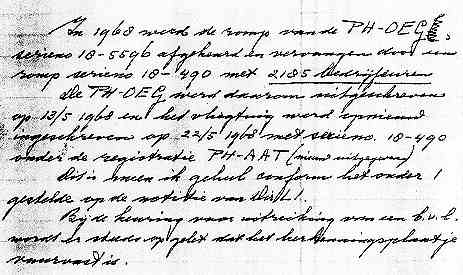 In 1968 werd de romp van de PH-OEG,
serieno 18-5596 afgekeurd en vervangen door een
romp serieno 18-490 met 2185 bedrijfsuren
De PH-OEG werd daarom uitgeschreven
op 13/5 1968 en het vliegtuig werd opnieuw
ingeschreven op 22/5 1968 met serieno. 18-490
onder de registratie PH-AAT (nieuw uitgegeven)
Dit is meen ik geheel conform het onder 1
gestelde op de notitie van Dir LI.
Bij de keuring voor uitreiking van een b.v.l.
wordt er steeds op gelet dat het herkenningsplaatje
vuurvast is.